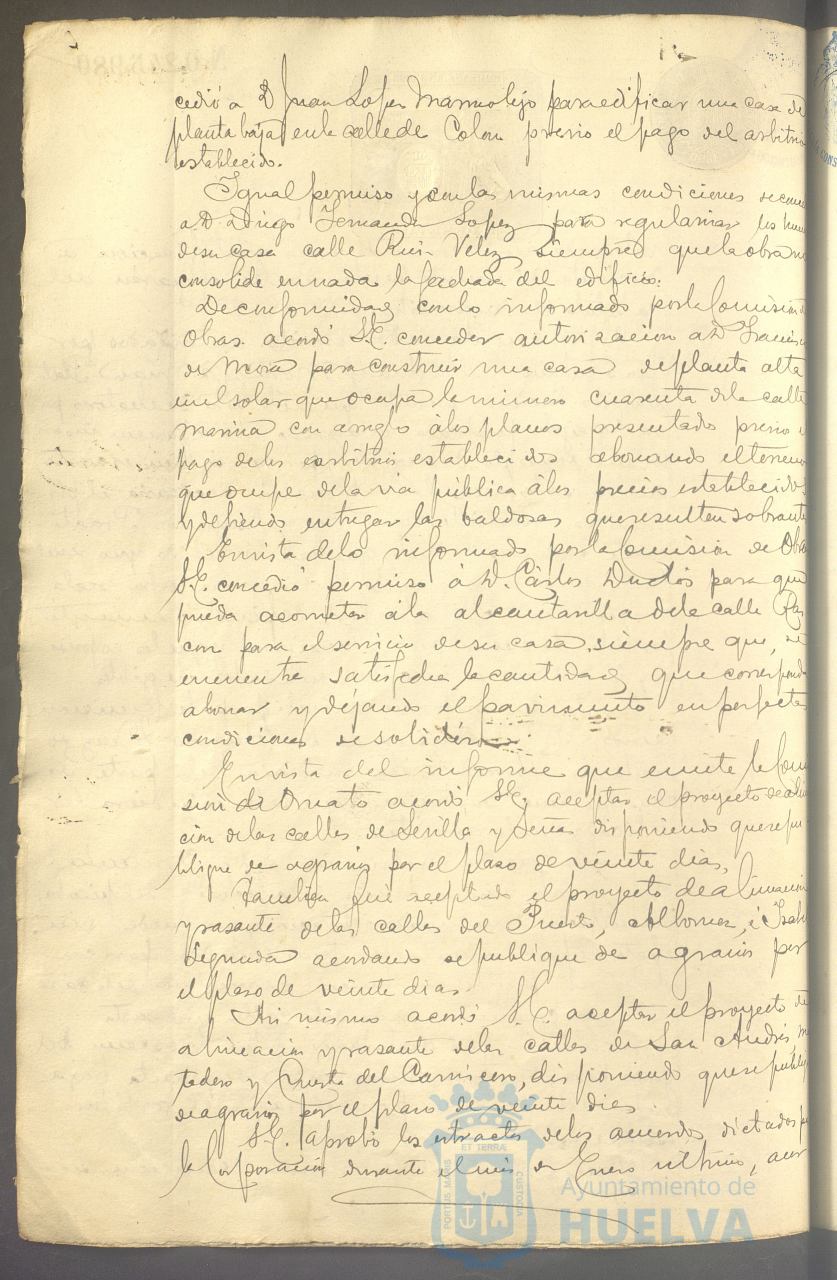 cedió a D Juan Lopez Marmolejo para edificar una casa de
planta baja en la calle de Colon previo el pago del arbitrio
establecido.
Igual permiso y con las mismas condiciones se conce
a D. Diego Fernandez Lopez para regularizar los huecos
de su casa calle Ruiz Velez siempre que la obra no
consolide en nada la fachada del edificio.
De conformidad con lo informado por la Comision de
Obras acordó S.E. conceder autorizacion a D Francisco
de Mora para construir una casa de planta alta
en el solar que ocupa la numero cuarenta de la calle
Marina con arreglo á los planos presentados previo el
pago de los arbitrios establecidos abonando el terreno
que ocupe de la via pública á los precios establecidos
y debiendo entregar las baldosas que resulten sobrante
En vista de lo informado por la Comision de Obras
S.E. concedió permiso á D. Cárlos Duclós para que
pueda acometer á la alcantarilla de la calle Ras
con para el servicio de su casa, siempre que, se
encuentre satisfecha la cantidad que corresponda
abonar y dejando el pavimento en perfectas
condiciones de solidéz.
En vista del informe que emite la Comi
sion de Ornato acordó S.E. aceptar el proyecto de alinea
cion de las calles de Sevilla y Señas disponiendo que se pu-
blique de agravios por el plazo de veinte dias.
Tambien fué aceptado el proyecto de alineacion
y rasante de las calles del Puerto, Alhornoz, é Isabel
Segunda acordando se publique de agravios por
el plazo de veinte dias
Asi mismo acordó S.E. aceptar el proyecto de
alineacion y rasante de las calles de San Andrés, Ma
tadero y Cuesta del Carnicero, disponiendo que se publique
de agravios por el plazo de veinte dias.
S.E. aprobó los extractos de los acuerdos dictados por
la Corporacion durante el mes de Enero ultimo, acor
PORTUS MARIS
ET TERRÆ
CUSTODIA
Ayuntamiento de
HUELVA